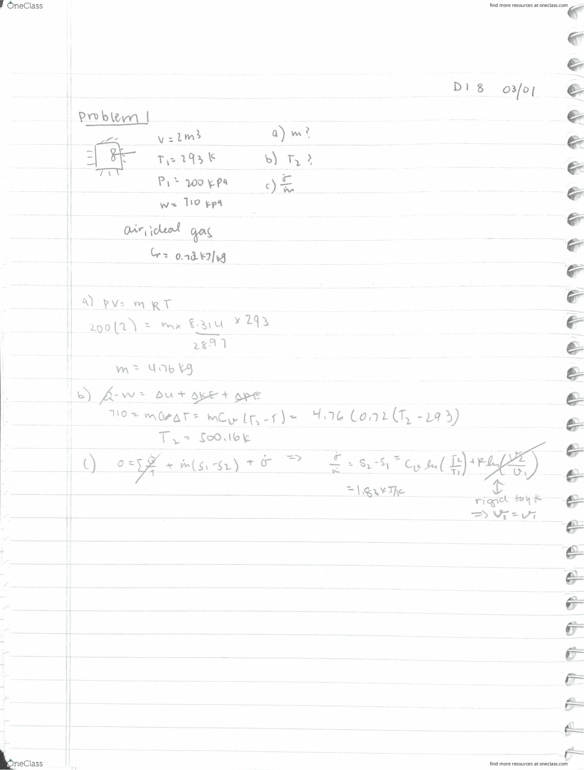 OneClass
find more resources at oneclass.com
DI 8 03/01
Problem 1
V = 2m³
a) m?
T₁ = 293 K
b) T₂ ?
P₁ = 200 kPa
c) σ̇/ṁ
W = 710 kPa
air, ideal gas
Cv = 0.72 kJ/kg
a) PV = m R T
200(2) = m x 8.314 / 28.97 x 293
m = 4.76 kg
b) Q - W = ΔU + ΔKE + ΔPE
710 = mCvΔT = mCv(T₂ - T) = 4.76 (0.72(T₂ - 293)
T₂ = 500.16K
(c) + ṁ(s₁ - s₂) + σ̇ ⇒ σ̇/ṁ = s₂ - s₁ = Cv ln(T₂/T₁) + R ln(V₂/V₁)
= 1.83 kJ/K
rigid tank
⇒ V₂ = V₁
OneClass
find more resources at oneclass.com